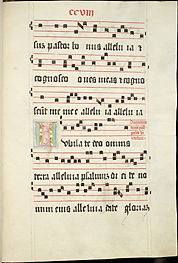 CCVIII
sus pastor bo nus alleluia et
cognosco oves meas et cogno
scunt me mee alleluia alleluia
Jubilate deo omnis
terra alleluia psalmum di ci te no
mini eius alleluia date gloriam